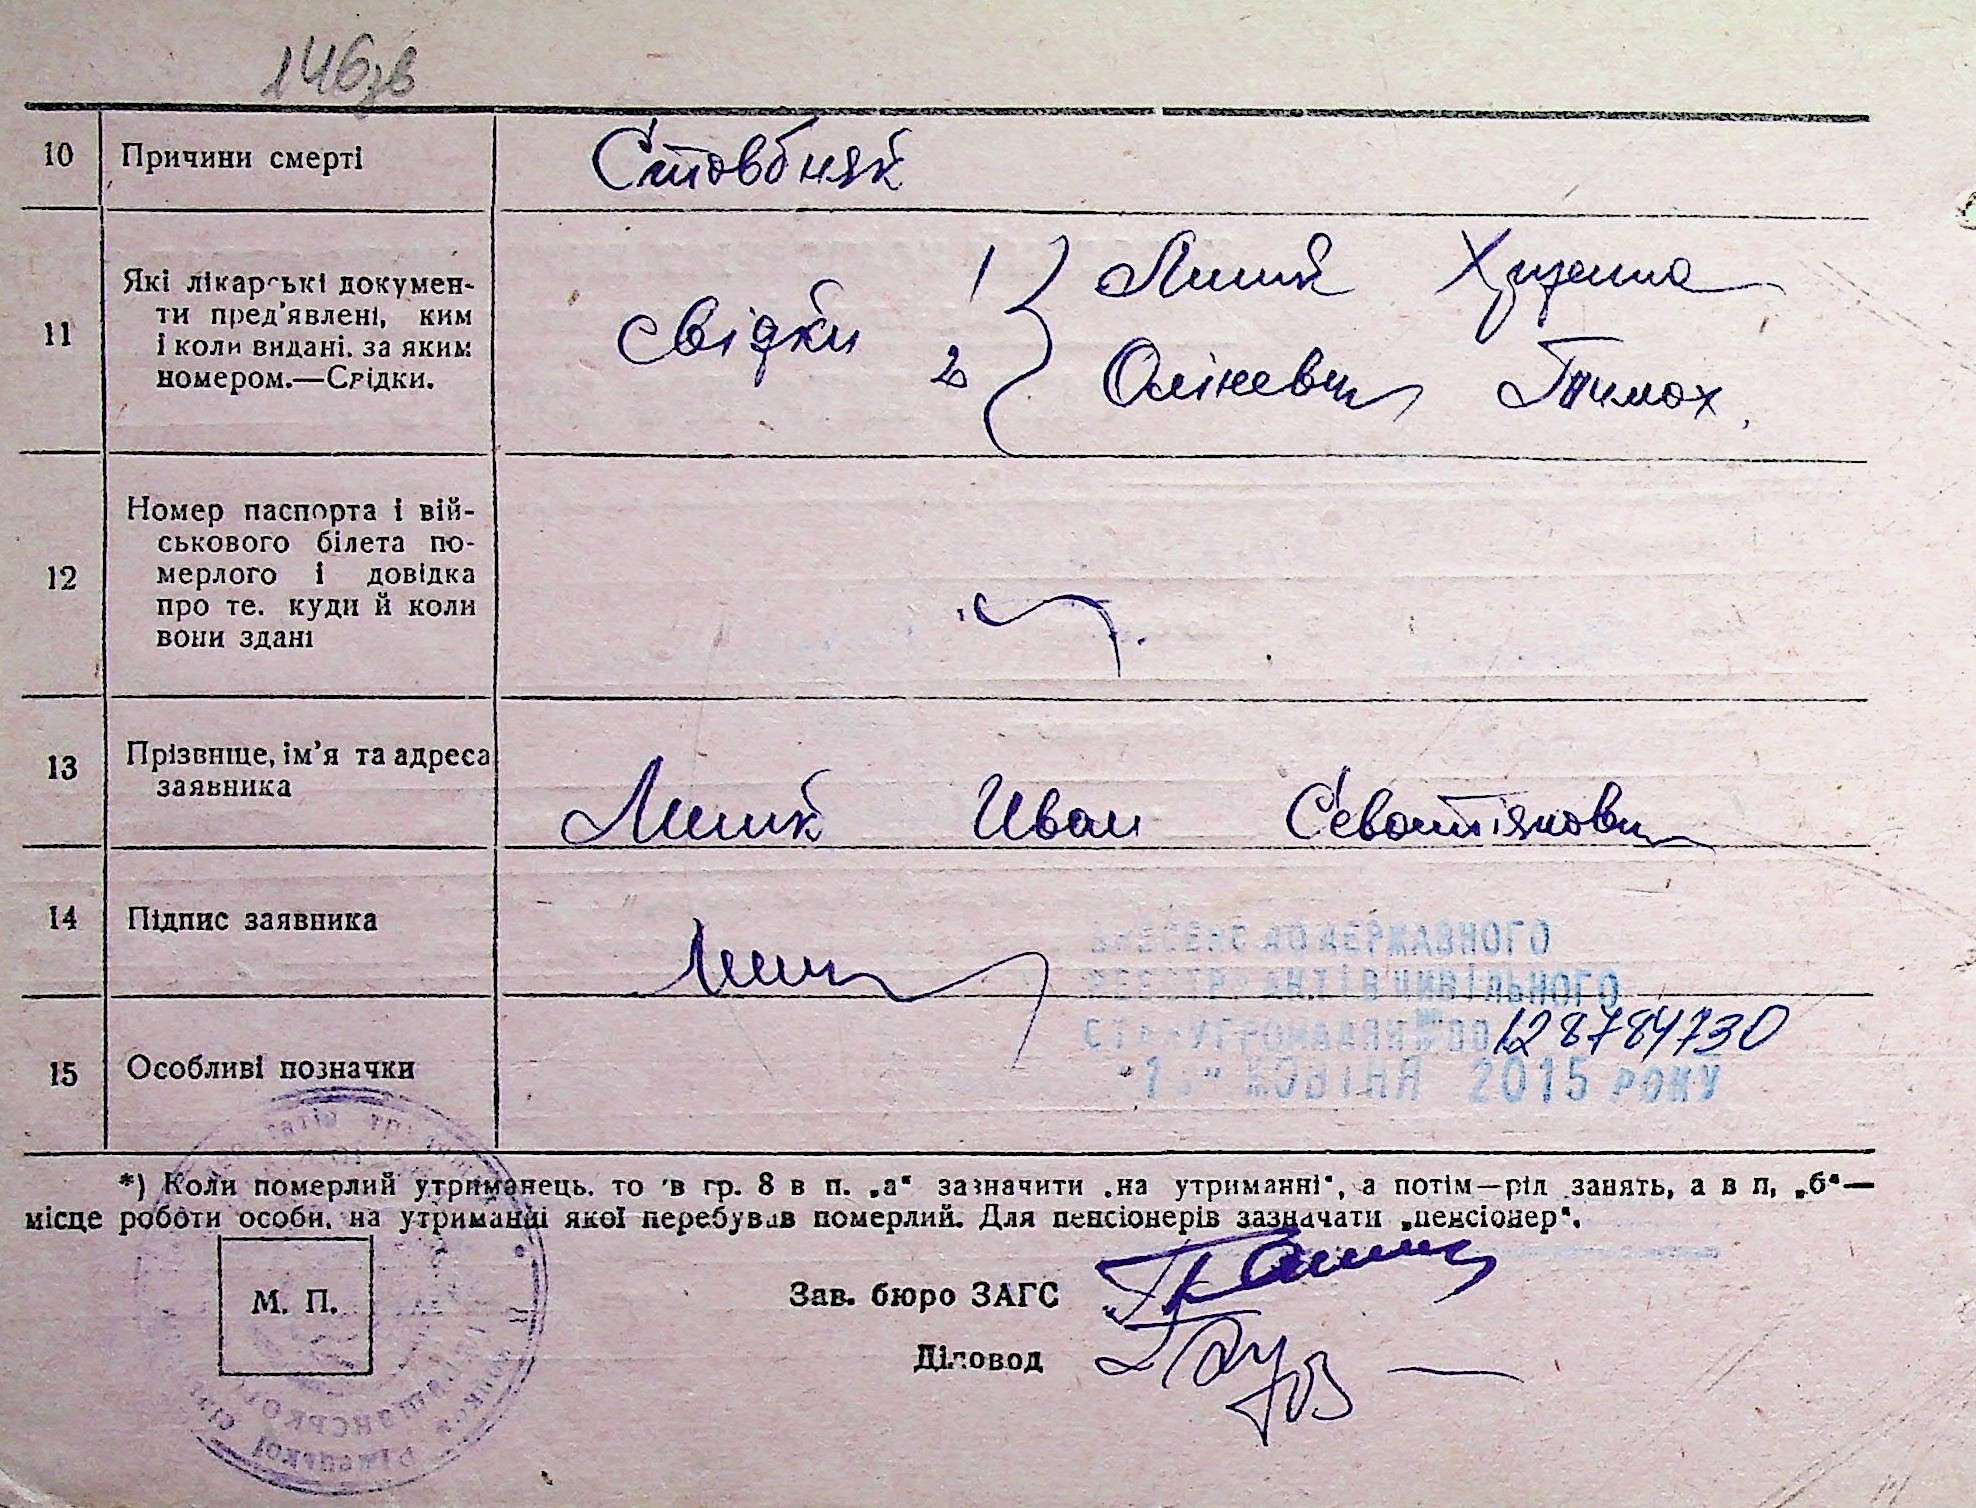 146зв
10 Причини смерті Стовбняк
11 Які лікарські докумен-
ти пред'явлені, ким
і коли видані, за яким
номером.—Свідки.
свідки 1 Лишк
2 Оліневич Тимох.
12 Номер паспорта і вій-
ськового білета по-
мерлого і довідка
про те, куди й коли
вони здані
13 Прізвище, ім'я та адреса
заявника
Лишк Иван Севастіянович
14 Підпис заявника
ВНЕСЕНО ДО ДЕРЖАВНОГО
РЕЄСТРУ АКТІВ ЦИВІЛЬНОГО
СТАНУ ГРОМАДЯН № 00128784730
15 Особливі позначки
ЖОВТНЯ 2015 РОКУ
*) Коли померлий утриманець, то в гр. 8 в п. „а“ зазначити „на утриманні“, а потім—рід занять, а в п, „б“—
місце роботи особи, на утриманні якої перебував померлий. Для пенсіонерів зазначати „пенсіонер“.
М. П.
Зав. бюро ЗАГС
Діловод